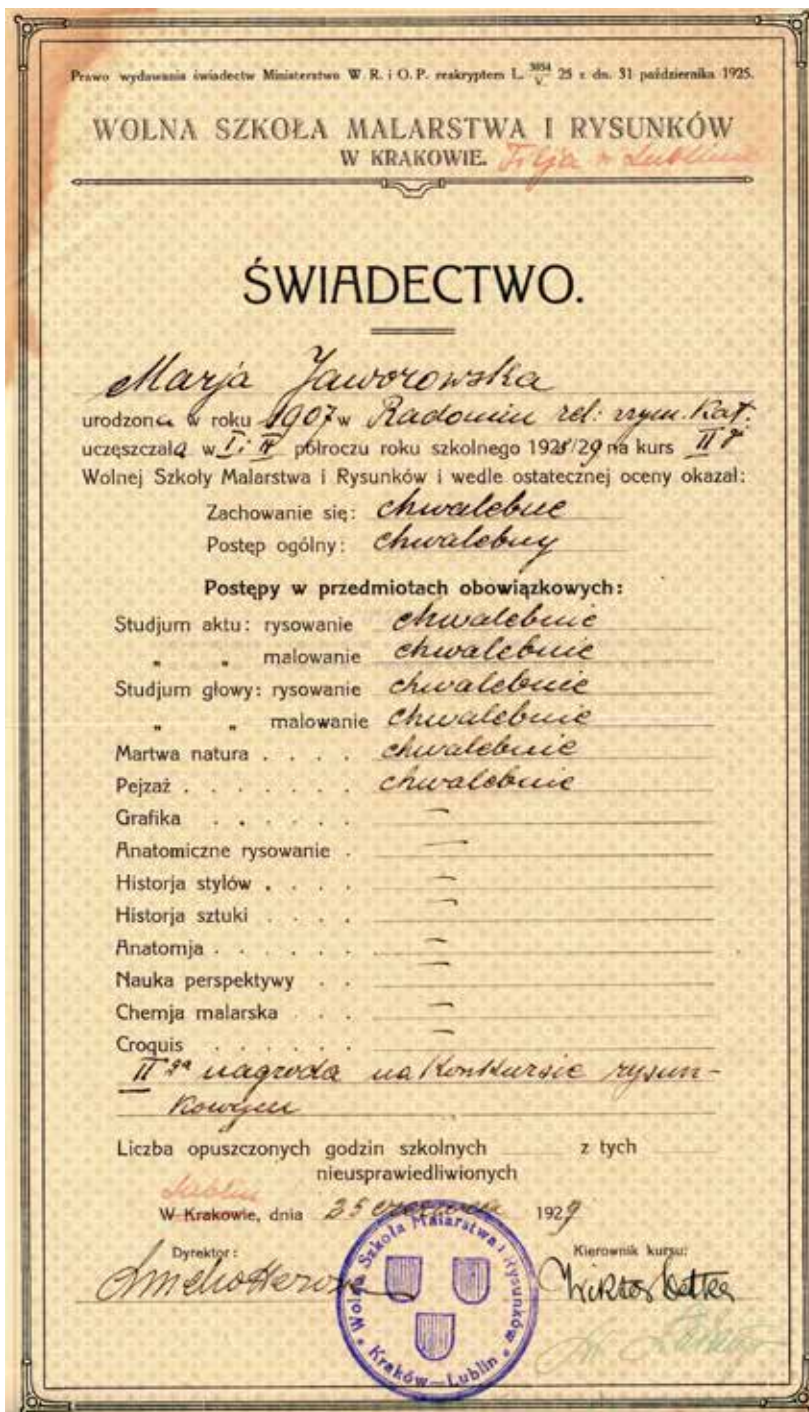 Prawo wydawania świadectw Ministerstwo W. R. i O. P. reskryptem L. 3054/V 25 z dn. 31 października 1925.
WOLNA SZKOŁA MALARSTWA I RYSUNKÓW
W KRAKOWIE. Filja w Lublinie
ŚWIADECTWO.
Marja Jaworowska
urodzona w roku 1907 w Radomiu rel: rzym. Kat.
uczęszczała w I i II półroczu roku szkolnego 1928/29 na kurs II
Wolnej Szkoły Malarstwa i Rysunków i wedle ostatecznej oceny okazał:
Zachowanie się: chwalebne
Postęp ogólny: chwalebny
Postępy w przedmiotach obowiązkowych:
Studjum aktu: rysowanie chwalebnie
„ „ malowanie chwalebnie
Studjum głowy: rysowanie chwalebnie
„ „ malowanie chwalebnie
Martwa natura . . . . chwalebnie
Pejzaż . . . . . . . chwalebnie
Grafika . . . . . . —
Anatomiczne rysowanie . —
Historja stylów . . . . —
Historja sztuki . . . . —
Anatomja . . . . . . —
Nauka perspektywy . . —
Chemja malarska . . . —
Croquis . . . . . . —
II ga nagroda na Konkursie rysun-
kowym
Liczba opuszczonych godzin szkolnych z tych
nieusprawiedliwionych
Lublin
W Krakowie, dnia 25 czerwca 1929
Dyrektor: Kierownik kursu:
Wiktor
Wolna Szkoła Malarstwa i Rysunków
Kraków—Lublin